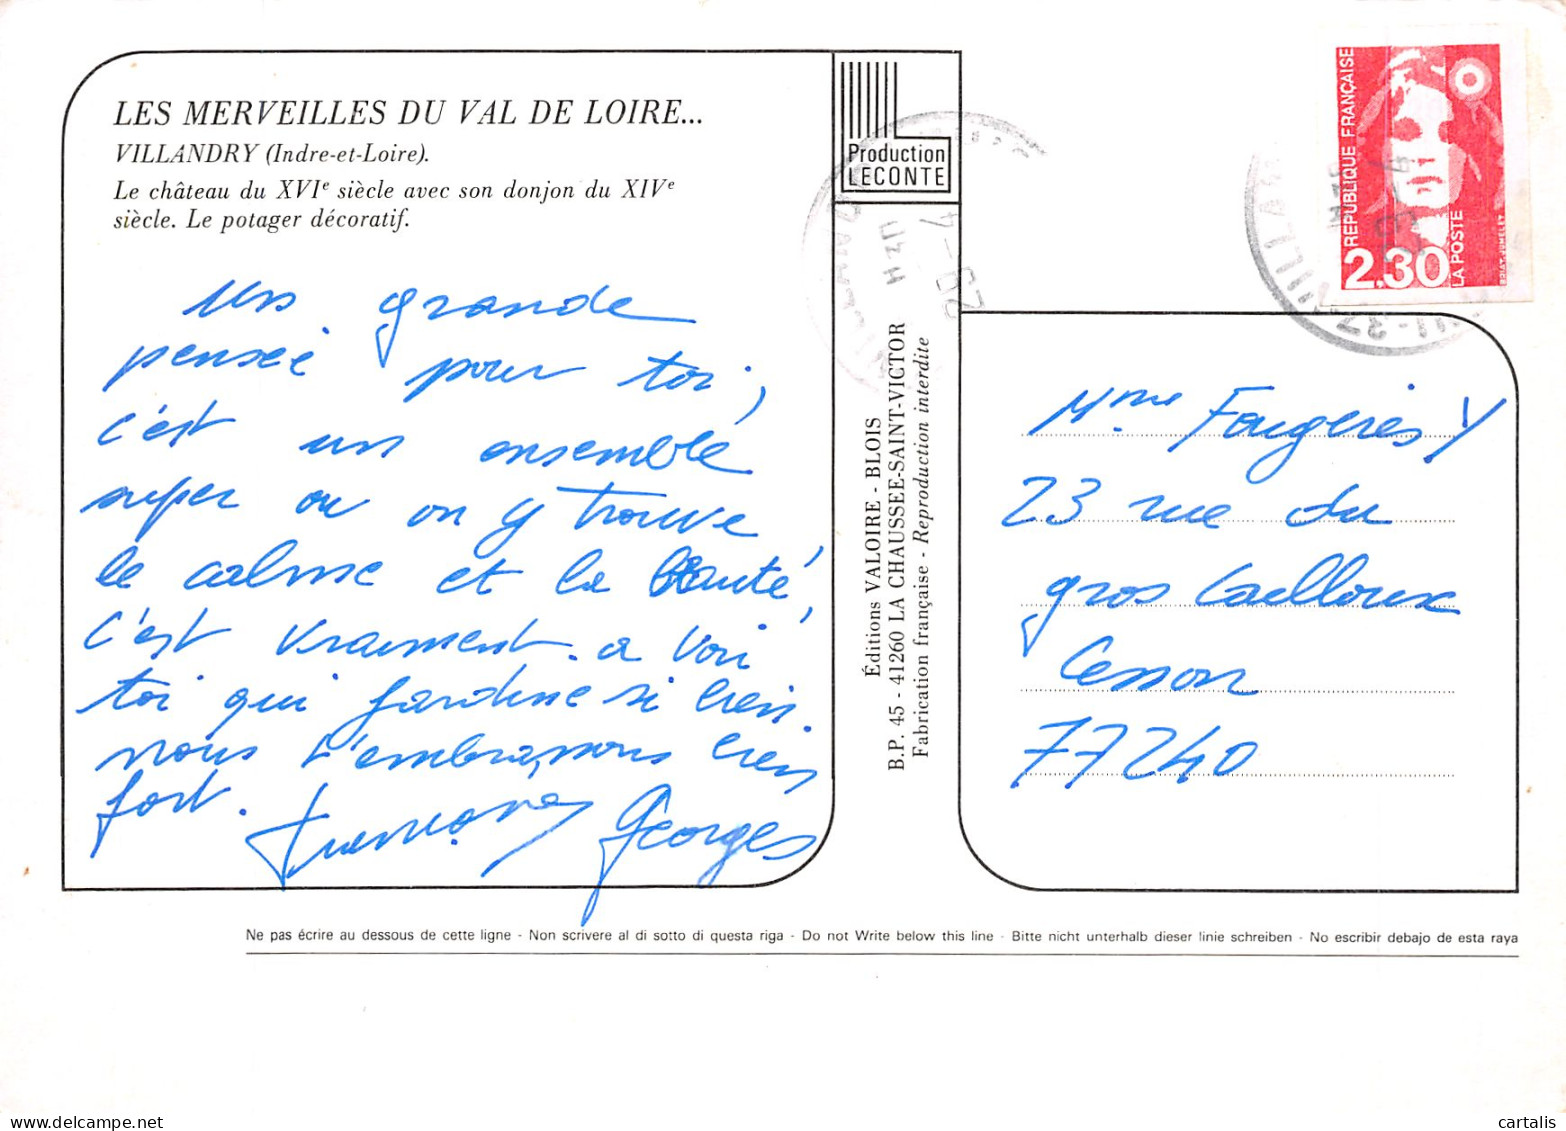 LES MERVEILLES DU VAL DE LOIRE...
VILLANDRY (Indre-et-Loire).
Le château du XVIe siècle avec son donjon du XIVe
siècle. Le potager décoratif.
Une grande
pensée pour toi,
c'est un ensemble
super ou on y trouve
le calme et la beauté,
c'est vraiment a voir
toi qui jardine si bien.
nous t'embrassons bien
fort.
Georges
Production
LECONTE
Éditions VALOIRE - BLOIS
B.P. 45 - 41260 LA CHAUSSEE-SAINT-VICTOR
Fabrication française - Reproduction interdite
REPUBLIQUE FRANÇAISE
2.30
LA POSTE
Mme Fougeries Y
23 rue du
gros Cailloux
Cesson
77240
Ne pas écrire au dessous de cette ligne - Non scrivere al di sotto di questa riga - Do not Write below this line - Bitte nicht unterhalb dieser linie schreiben - No escribir debajo de esta raya
cartalis